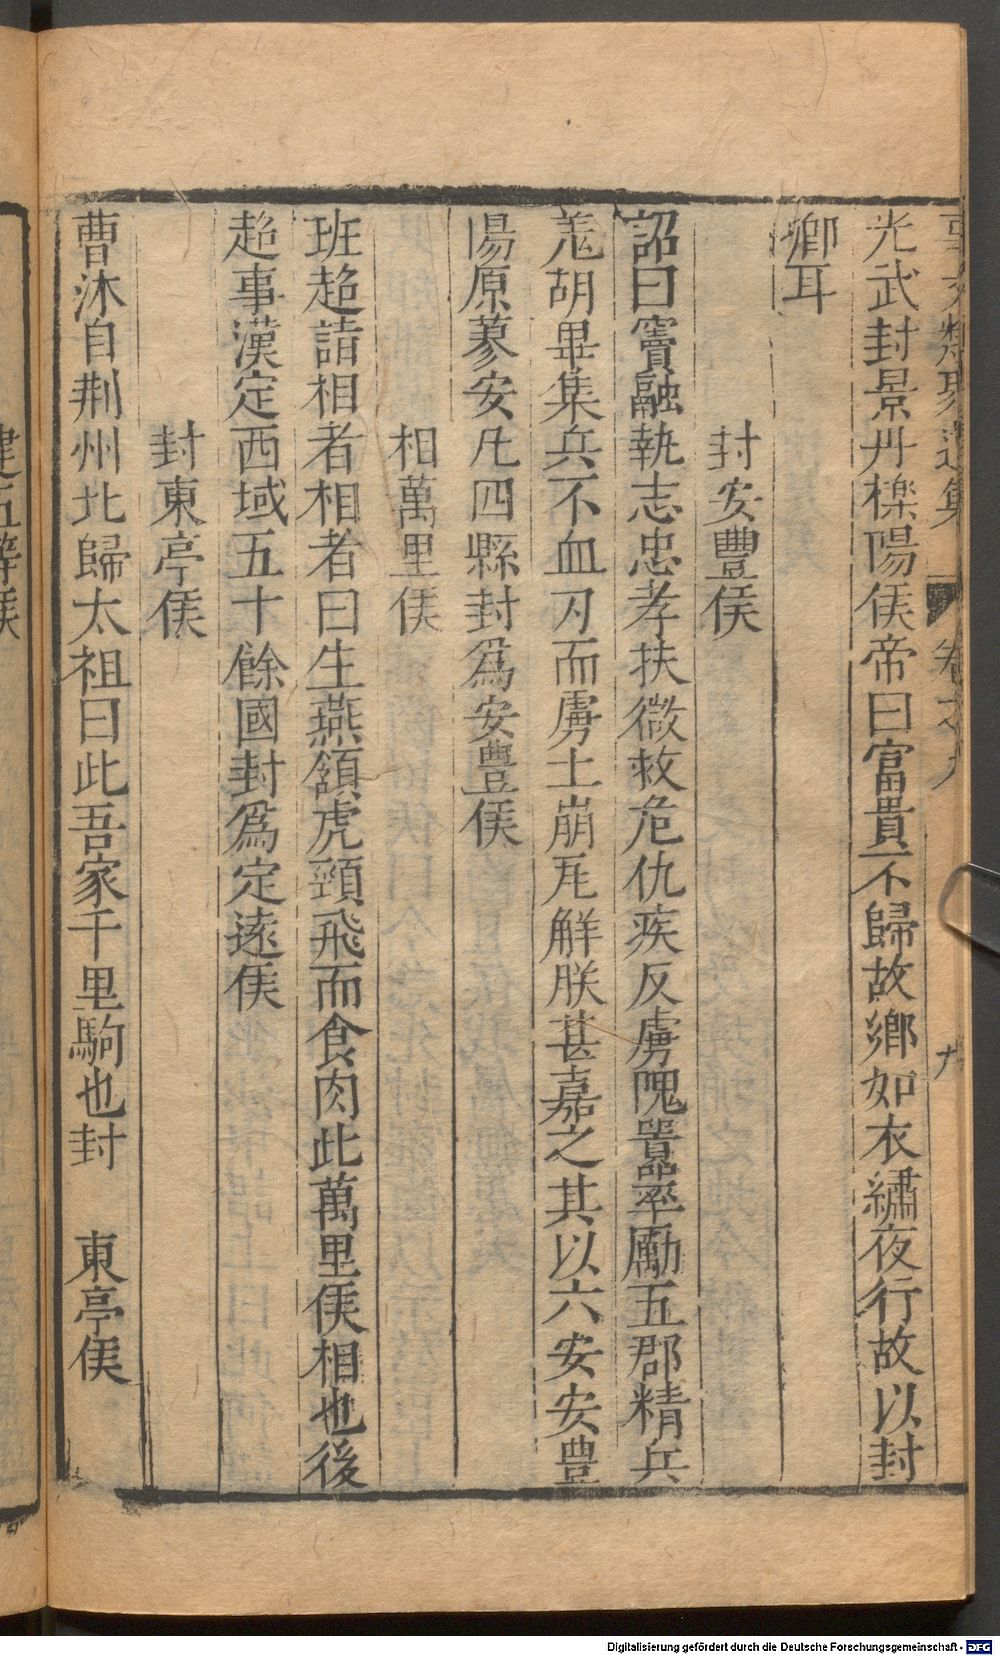 事文類聚遺集 卷之九 九
光武封景丹櫟陽侯帝曰富貴不歸故鄉如衣繡夜行故以封
鄉耳
封安豐侯
詔曰竇融執志忠孝扶微救危仇疾反虜隗囂率勵五郡精兵
羗胡畢集兵不血刃而虜土崩瓦解朕甚嘉之其以六安安豊
陽原蓼安凡四縣封爲安豊侯
相萬里侯
班超詣相者相者曰生燕頷虎頸飛而食肉此萬里侯相也後
超事漢定西域五十餘國封爲定遠侯
封東亭侯
曹沐自荆州北歸太祖曰此吾家千里駒也封 東亭侯
建五等侯
Digitalisierung gefördert durch die Deutsche Forschungsgemeinschaft - DFG